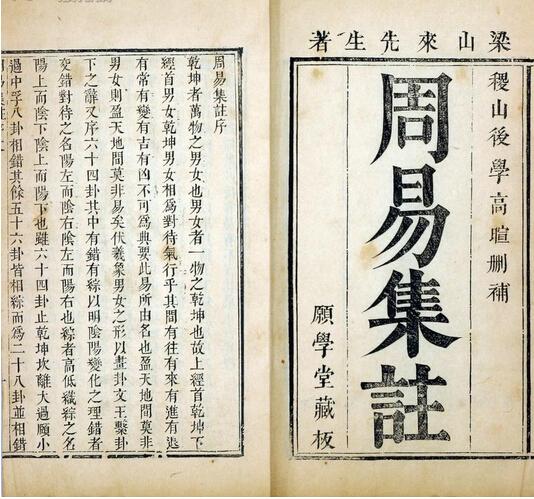 梁山來先生著
稷山後學高暄刪補
周易集註
願學堂藏板
周易集註序
乾坤者萬物之男女也男女者一物之乾坤也故上經首乾坤下
經首男女乾坤男女相爲對待氣行乎其間有往有來有進有退
有常有變有吉有凶不可爲典要此易所由名也盈天地間莫非
男女則盈天地間莫非易矣伏羲象男女之形以畫卦文王繫卦
下之辭又序六十四卦其中有錯有綜以明陰陽變化之理錯者
交錯對待之名陽左而陰右陰左而陽右也綜者高低織綜之名
陽上而陰下陰上而陽下也雖六十四卦止乾坤坎離大過頤小
過中孚八卦相錯其餘五十六卦皆相綜而爲二十八卦並相錯